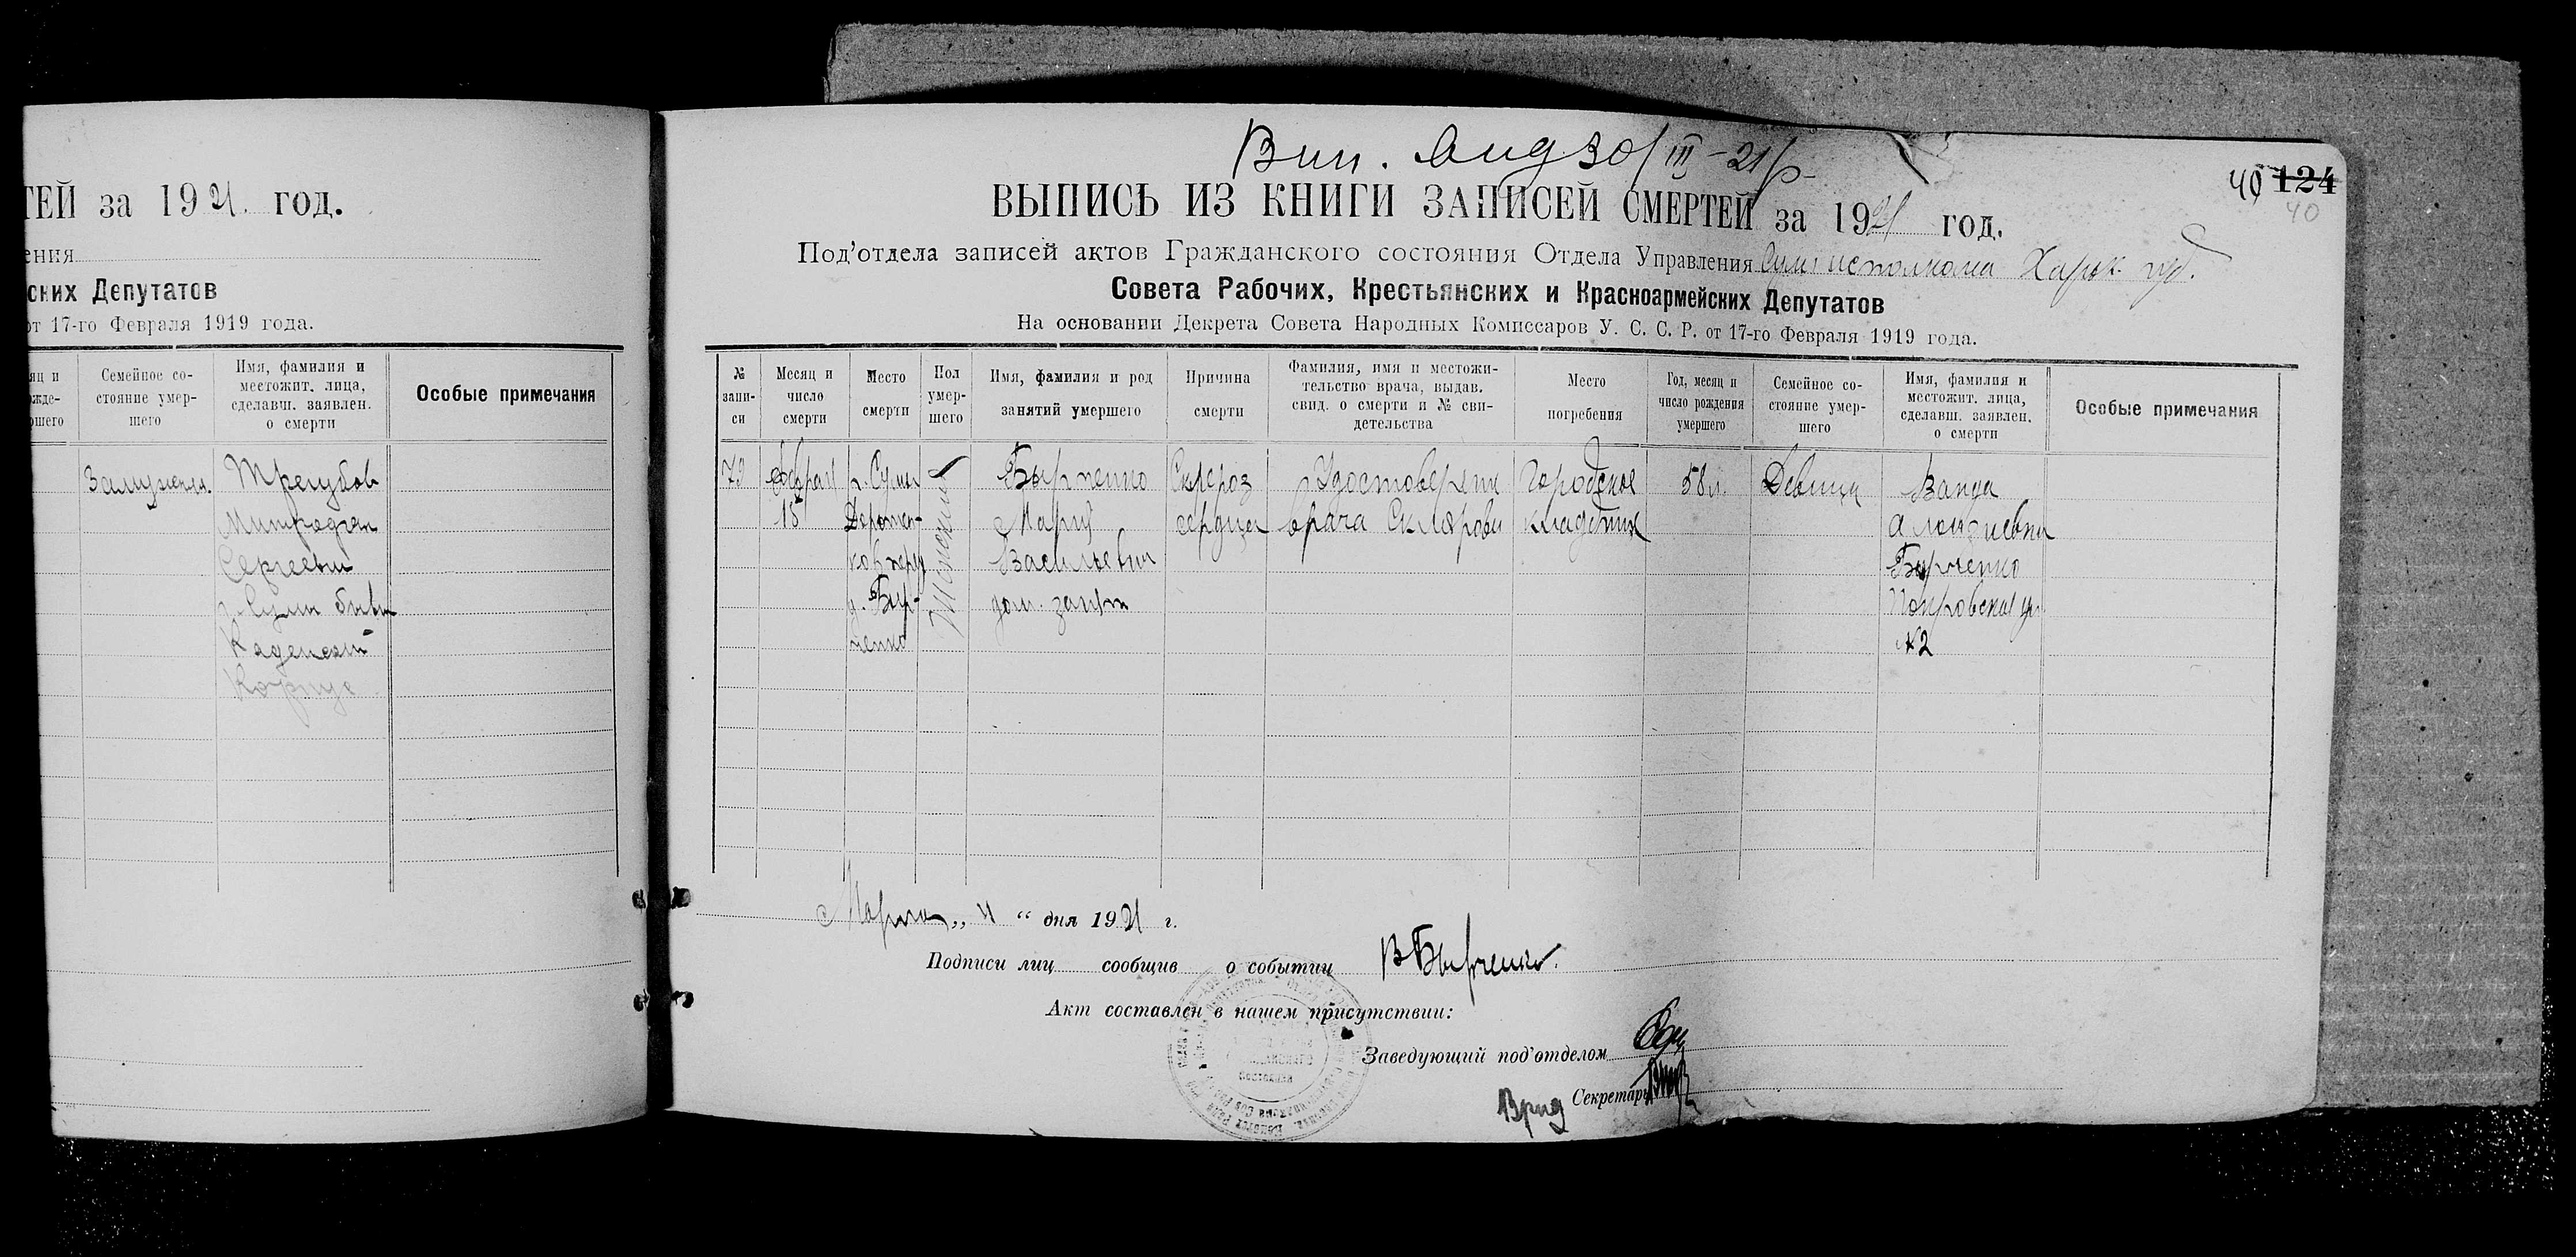 ТЕЙ за 1921. год.
ения
ских Депутатов
от 17-го Февраля 1919 года.
яц и
ожде-
ршего
Семейное со-
стояние умер-
шего
Имя, фамилия и
местожит. лица,
сделавш. заявлен.
о смерти
Особые примечания
Замужняя.
Трегубов
Митрофан
Сергеевич
г. Сумы бывш
Кадетский
Корпус
Вип. вид 30/III-21 р
40 124
40
ВЫПИСЬ ИЗ КНИГИ ЗАПИСЕЙ СМЕРТЕЙ за 1921 год.
Под'отдела записей актов Гражданского состояния Отдела Управления Сум. исполкома Харьк. губ.
Совета Рабочих, Крестьянских и Красноармейских Депутатов
На основании Декрета Совета Народных Комиссаров У. С. С. Р. от 17-го Февраля 1919 года.
№
запи-
си
Месяц и
число
смерти
Место
смерти
Пол
умер-
шего
Имя, фамилия и род
занятий умершего
Причина
смерти
Фамилия, имя и местожи-
тельство врача, выдав.
свид. о смерти и № сви-
детельства
Место
погребения
Год, месяц и
число рождения
умершего
Семейное со-
стояние умер-
шего
Имя, фамилия и
местожит. лица,
сделавш. заявлен.
о смерти
Особые примечания
73
Февраля
15
г. Сумы
д. Быр-
ченко
Женский
Бырченко
Мария
Васильевна
дом. занят
Склероз
сердца
Удостоверение
врача Склярова
Городское
кладбище
58 л.
Девица
Ванда
Бырченко
Покровская ул
№2
Марта „ 4 “ дня 1921 г.
Подписи лиц сообщив о событии В Бырченко.
Акт составлен в нашем присутствии:
Заведующий под'отделом
Врид Секретарь